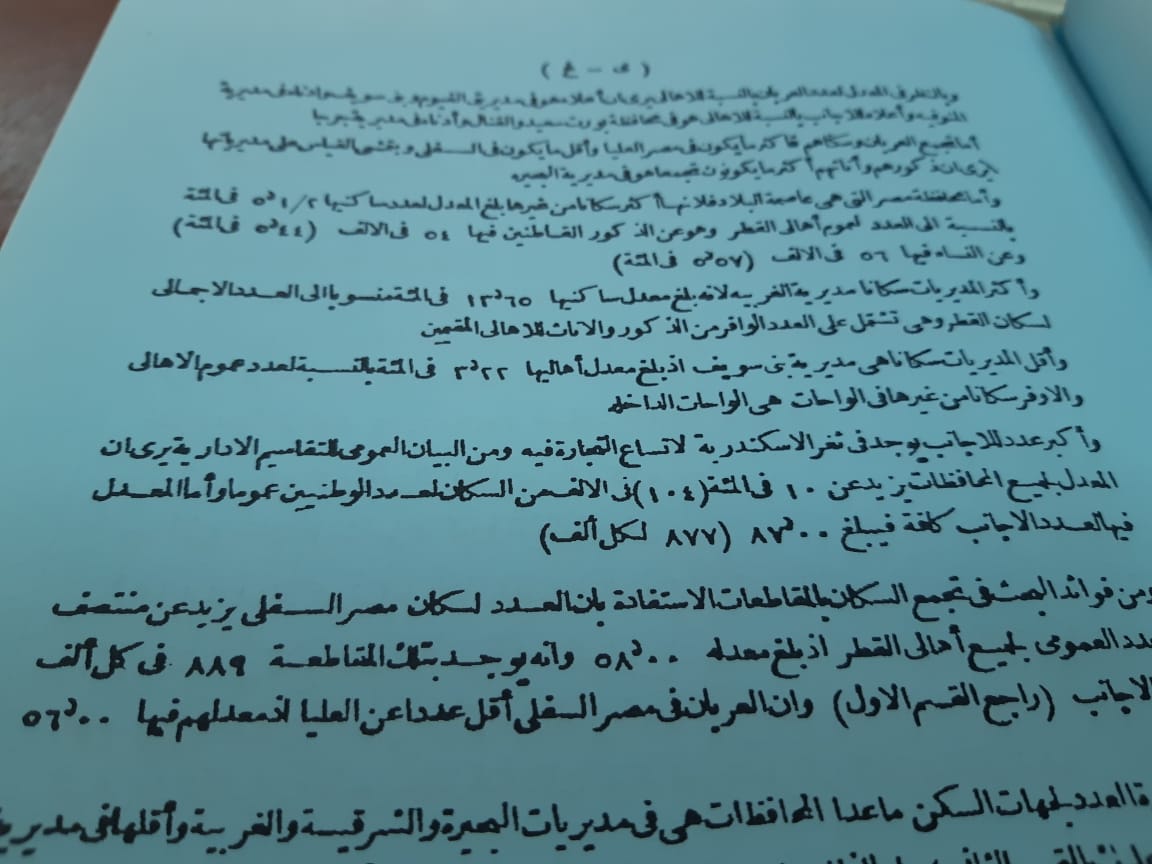 ( ى - غ )
وبالنظر فى المعدل لعدد العربان بالنسبة للاهالى يرى ان أعلاه هو فى مديرية الفيوم وبنى سويف وأدناه فى مديرية
المنوفيه وأعلاه للاجانب بالنسبة للاهالى هو فى محافظة بورت سعيد والقنال وأدناه فى مديرية جرجا
أما تجمع العربان وسكناهم فاكثر ما يكون فى مصر العليا وأقل ما يكون فى السفلى وبمقتضى القياس على مديرياتها
يرى ان ذكورهم وأناثهم أكثر ما يكونون تجمعا هو فى مديرية البحيره
وأما محافظة مصر التى هى عاصمة البلاد فلانها أكثر سكانا من غيرها بلغ المعدل لعدد ساكنيها ١/٢ ٥ فى المئة
بالنسبة الى العدد لعموم أهالى القطر وهو عن الذكور القاطنين فيها ٥٤ فى الالف (٥٫٤٤ فى المئة)
وعن النساء فيها ٥٦ فى الالف (٥٫٥٧ فى المئة)
وأكثر المديريات سكانا مديرية الغربيه لانه بلغ معدل ساكنيها ١٣٫٦٥ فى المئة منسوبا الى العدد الاجمالى
لسكان القطر وهى تشتمل على العدد الوافر من الذكور والاناث للاهالى المقيمين
وأقل المديريات سكانا هى مديرية بنى سويف اذ بلغ معدل أهاليها ٣٫٢٢ فى المئة بالنسبة لعدد عموم الاهالى
والاوفر سكانا من غيرها فى الواحات هى الواحات الداخله
وأكبر عدد للاجانب يوجد فى ثغر الاسكندرية لاتساع التجارة فيه ومن البيان العمومى للتقاسيم الادارية يرى ان
المعدل لجميع المحافظات يزيد عن ١٠ فى المئة (١٠٤) فى الالف من السكان لعدد الوطنيين عموما وأما المعدل
فيها لعدد الاجانب كافة فيبلغ ٨٧٫٠٠ (٨٧٧ لكل ألف)
ومن فوائد البحث فى تجمع السكان بالمقاطعات الاستفادة بان العدد لسكان مصر السفلى يزيد عن منتصف
العدد العمومى لجميع أهالى القطر اذ بلغ معدله ٥٨٫٠٠ وانه يوجد بتلك المقاطعة ٨٨٩ فى كل ألف
الاجانب (راجع القسم الاول) وان العربان فى مصر السفلى أقل عددا عن العليا اذ معدلهم فيها ٥٦٫٠٠
العدد لجهات السكن ماعدا المحافظات هى فى مديريات البحيرة والشرقية والغربية وأقلها فى